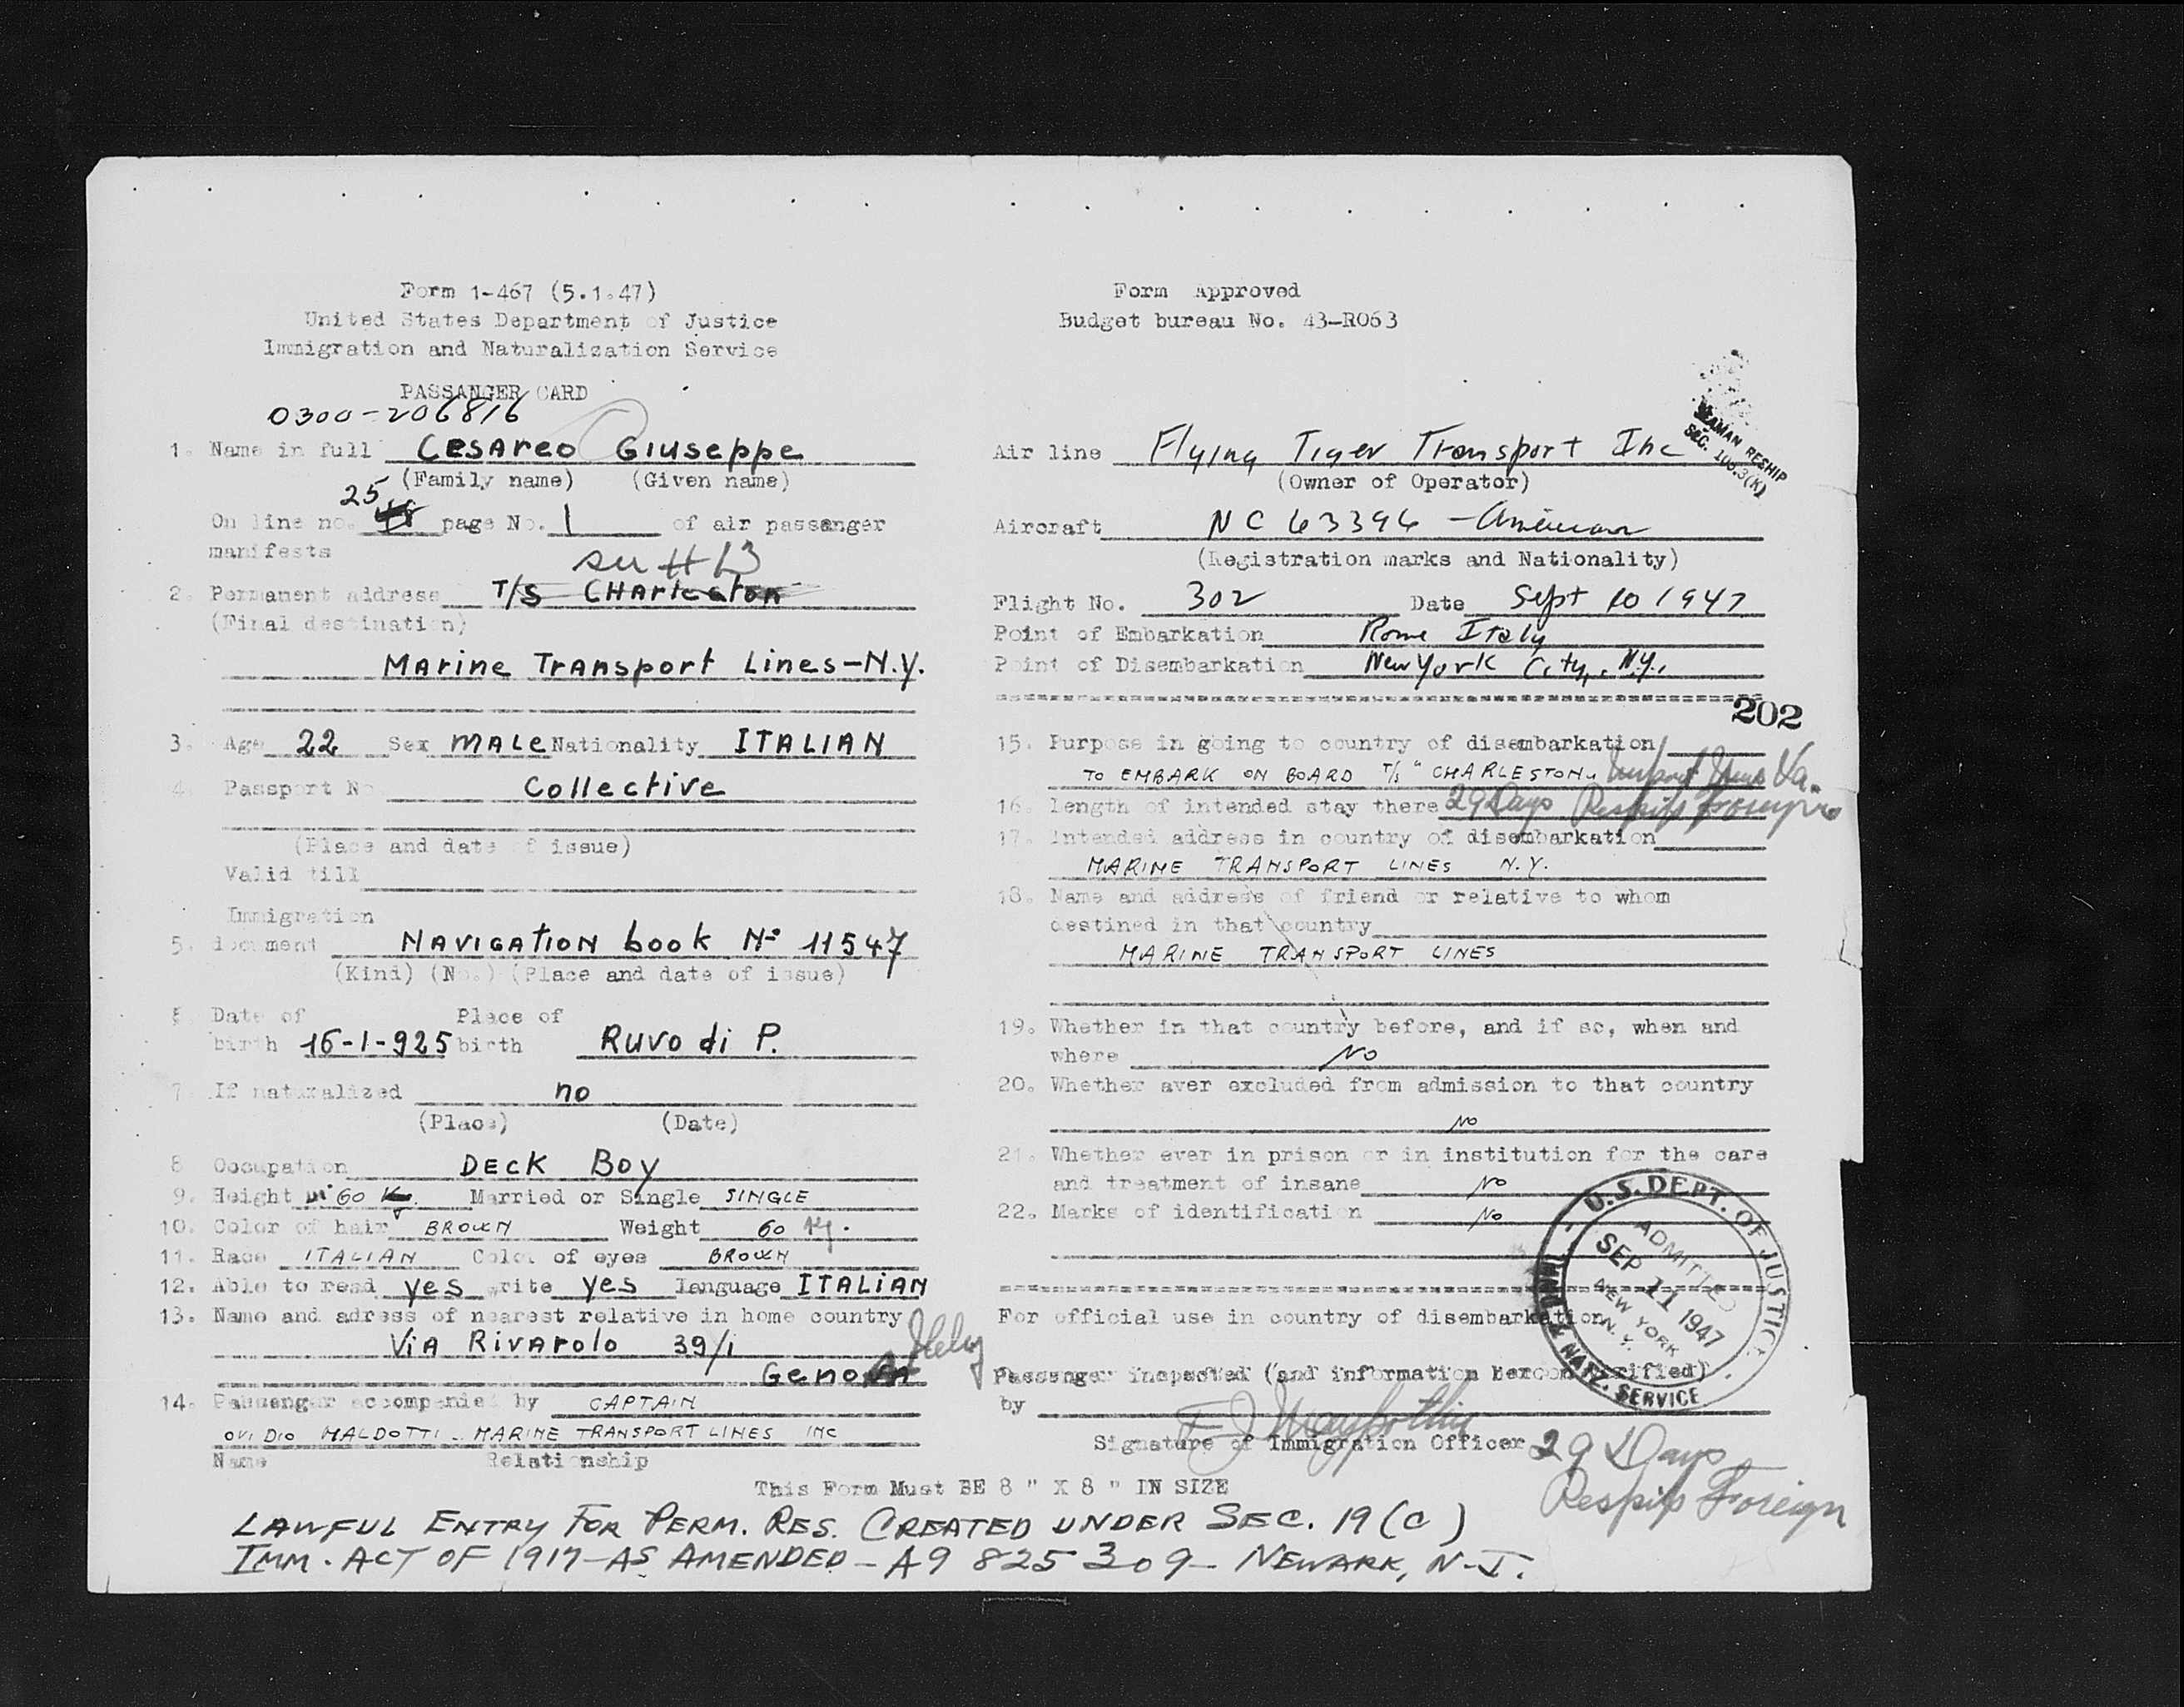 Form 1-467 (5.1.47)
United States Department of Justice
Immigration and Naturalization Service
PASSANGER CARD
0300-206816
1. Name in full Cesareo Giuseppe
(Family name) (Given name)
25
On line no. page No. 1 of air passanger
manifests
2. Permanent address T/S CHArleston
(Final destination)
Marine Transport Lines-N.Y.
3. Age 22 Sex MALE Nationality ITALIAN
4. Passport No Collective
(Place and date of issue)
Valid till
Immigration
5. document NAVIGATION book No 11547
(Kind) (No.) (Place and date of issue)
6 Date of Place of
birth 16-1-925 birth Ruvo di P.
7. If naturalized no
(Place) (Date)
8 Occupation DECK BOY
9. Height 60 Married or Single SINGLE
10. Color of hair BROWN Weight 60 Kg.
11. Race ITALIAN Color of eyes BROWN
12. Able to read yes write yes language ITALIAN
13. Name and adress of nearest relative in home country
Via Rivarolo 39/1
Genova Italy
14. Passenger accompanied by CAPTAIN
OVIDIO MALDOTTI - MARINE TRANSPORT LINES INC
Name Relationship
Form Approved
Budget bureau No. 43-R063
SEAMAN RESHIP
SEC. 106.3(K)
Air line Flying Tiger Transport Inc
(Owner of Operator)
Aircraft NC 63396 - American
(Registration marks and Nationality)
Flight No. 302 Date Sept 10 1947
Point of Embarkation Rome Italy
Point of Disembarkation New York City, N.Y.
202
15. Purpose in going to country of disembarkation
TO EMBARK ON BOARD T/S "CHARLESTON" Newport News Va.
16. length of intended stay there 29 Days Reship Foreign
17. Intended address in country of disembarkation
MARINE TRANSPORT LINES N.Y.
18. Name and address of friend or relative to whom
destined in that country
MARINE TRANSPORT LINES
19. Whether in that country before, and if so, when and
where No
20. Whether aver excluded from admission to that country
No
21. Whether ever in prison or in institution for the care
and treatment of insane No
22. Marks of identification No
U.S. DEPT. OF JUSTICE
ADMITTED
SEP 11 1947
NEW YORK
N.Y.
IMMI. & NATZ. SERVICE
For official use in country of disembarkation
Passenger inspected (and information hereon verified)
by
Signature of Immigration Officer
29 Days
Reship Foreign
This Form Must BE 8 " X 8 " IN SIZE
LAWFUL ENTRY FOR PERM. RES. CREATED UNDER SEC. 19 (C)
IMM. ACT OF 1917-AS AMENDED - A9 825 309- NEWARK, N-J.